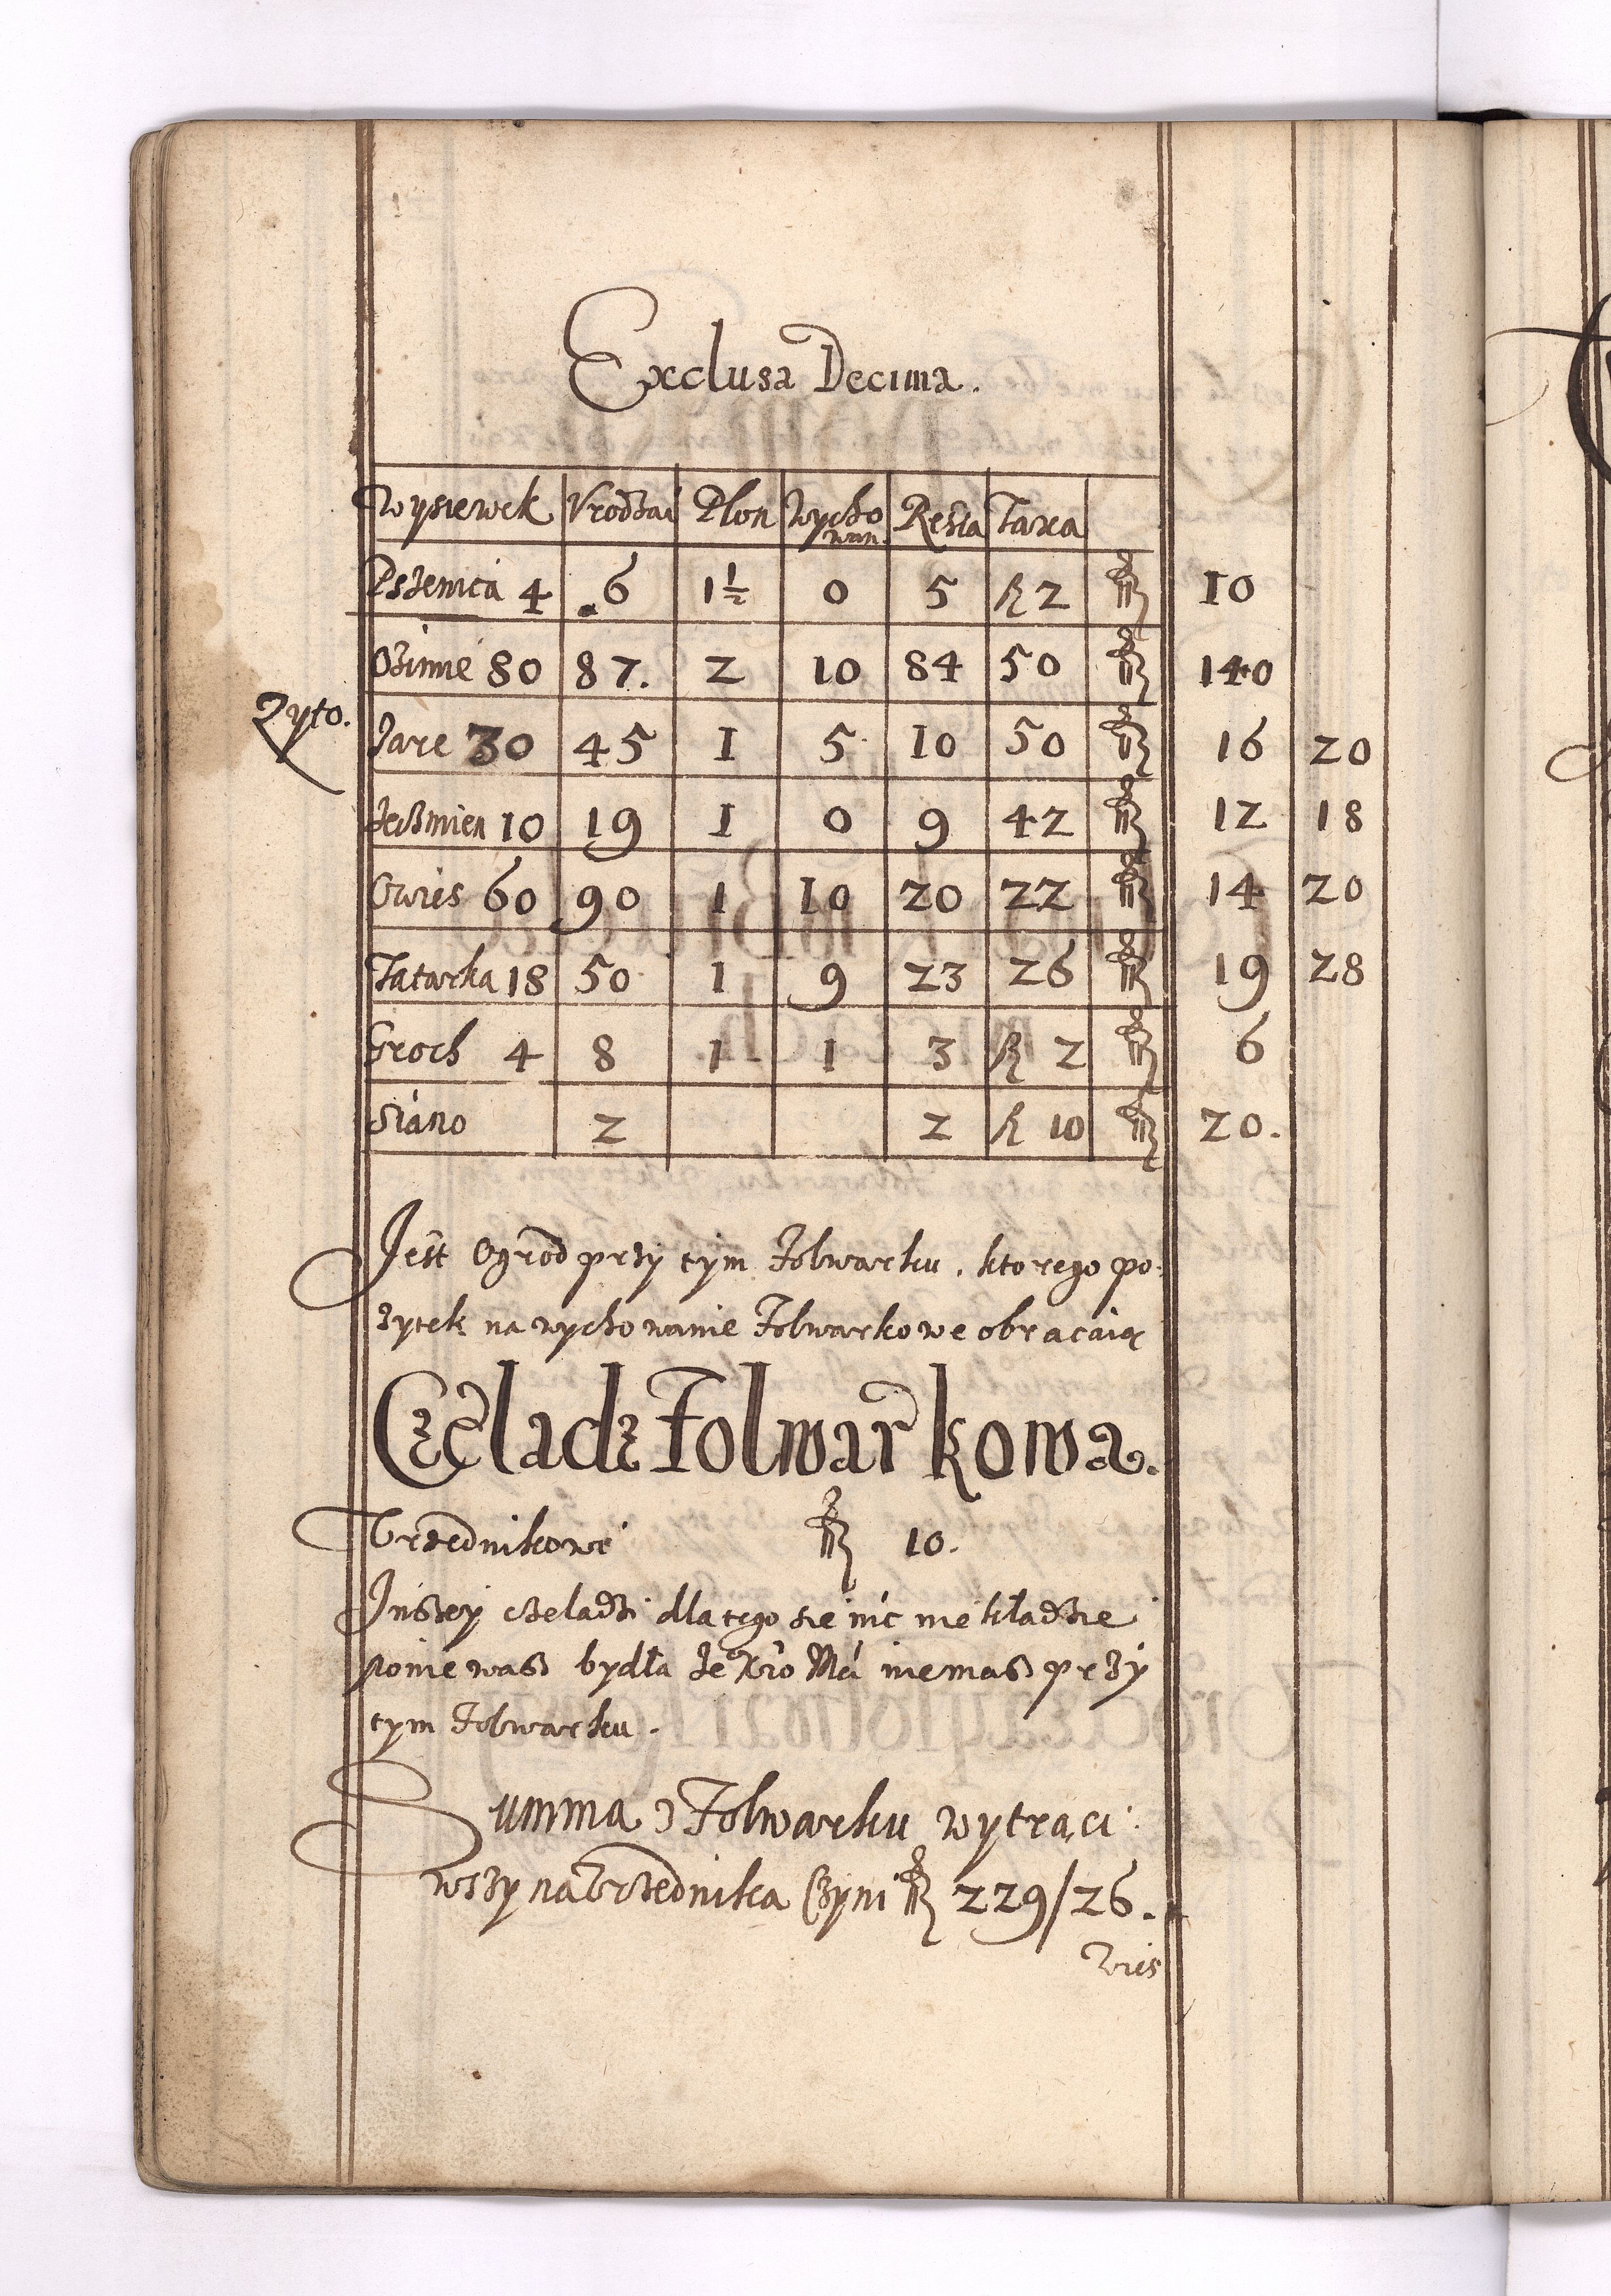 Exclusa Decima.
Wysiewek Vrodzai Plon Wycho Resta Taxa
wan.
Pszenica 4 6 1½ 0 5 fl 2 10
Ozime 80 87. 2 10 84 50 140
Zyto.
Jare 30 45 1 5 10 50 16 20
Jeczmien 10 19 1 0 9 42 12 18
Owies 60 90 1 10 20 22 14 20
Tatarka 18 50 1 9 23 26 19 28
Groch 4 8 1 1 3 fl 2 6
Siáno 2 2 fl 10 20.
Jest Ogrod przy tym Folwarku, ktorego po:
zytek na wychowanie Folwarkowe obracaią
Czeladz Folwarkowa.
Vrzednikowi 10.
Jnszey czeladzi dla tego sie nic nie kładzie
poniewasz bydła Je Kro Má niemasz przy
tym Folwarku.
Summa z Folwarku wytrąci:
wszy na Vrzednika Czyni 229/26.
Wies